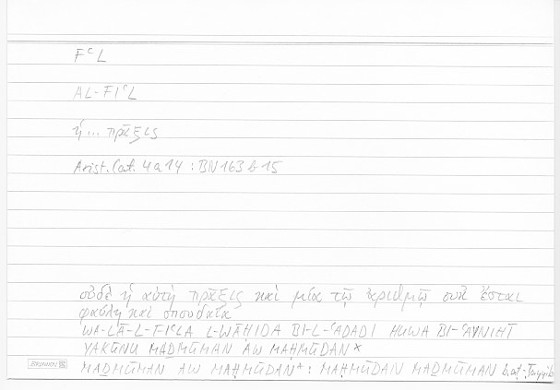 FᶜL
AL-FIᶜL
ἡ ... πρᾶξις
Arist. Cat. 4a14 : BN 163b15
οὐδὲ ἡ αὐτὴ πρᾶξις καὶ μία τῷ ἀριθμῷ οὐκ ἔσται
φαύλη καὶ σπουδαία
WA-LĀ-L-FIᶜLA L-WĀḤIDA BI-L-ᶜADADI HUWA BI-ᶜAYNIHĪ
YAKŪNU MAḎMŪMAN AW MAḤMŪDAN*
MAḎMŪMAN AW MAḤMŪDAN*: MAḤMŪDAN MAḎMŪMAN b. aṭ-Ṭayyib